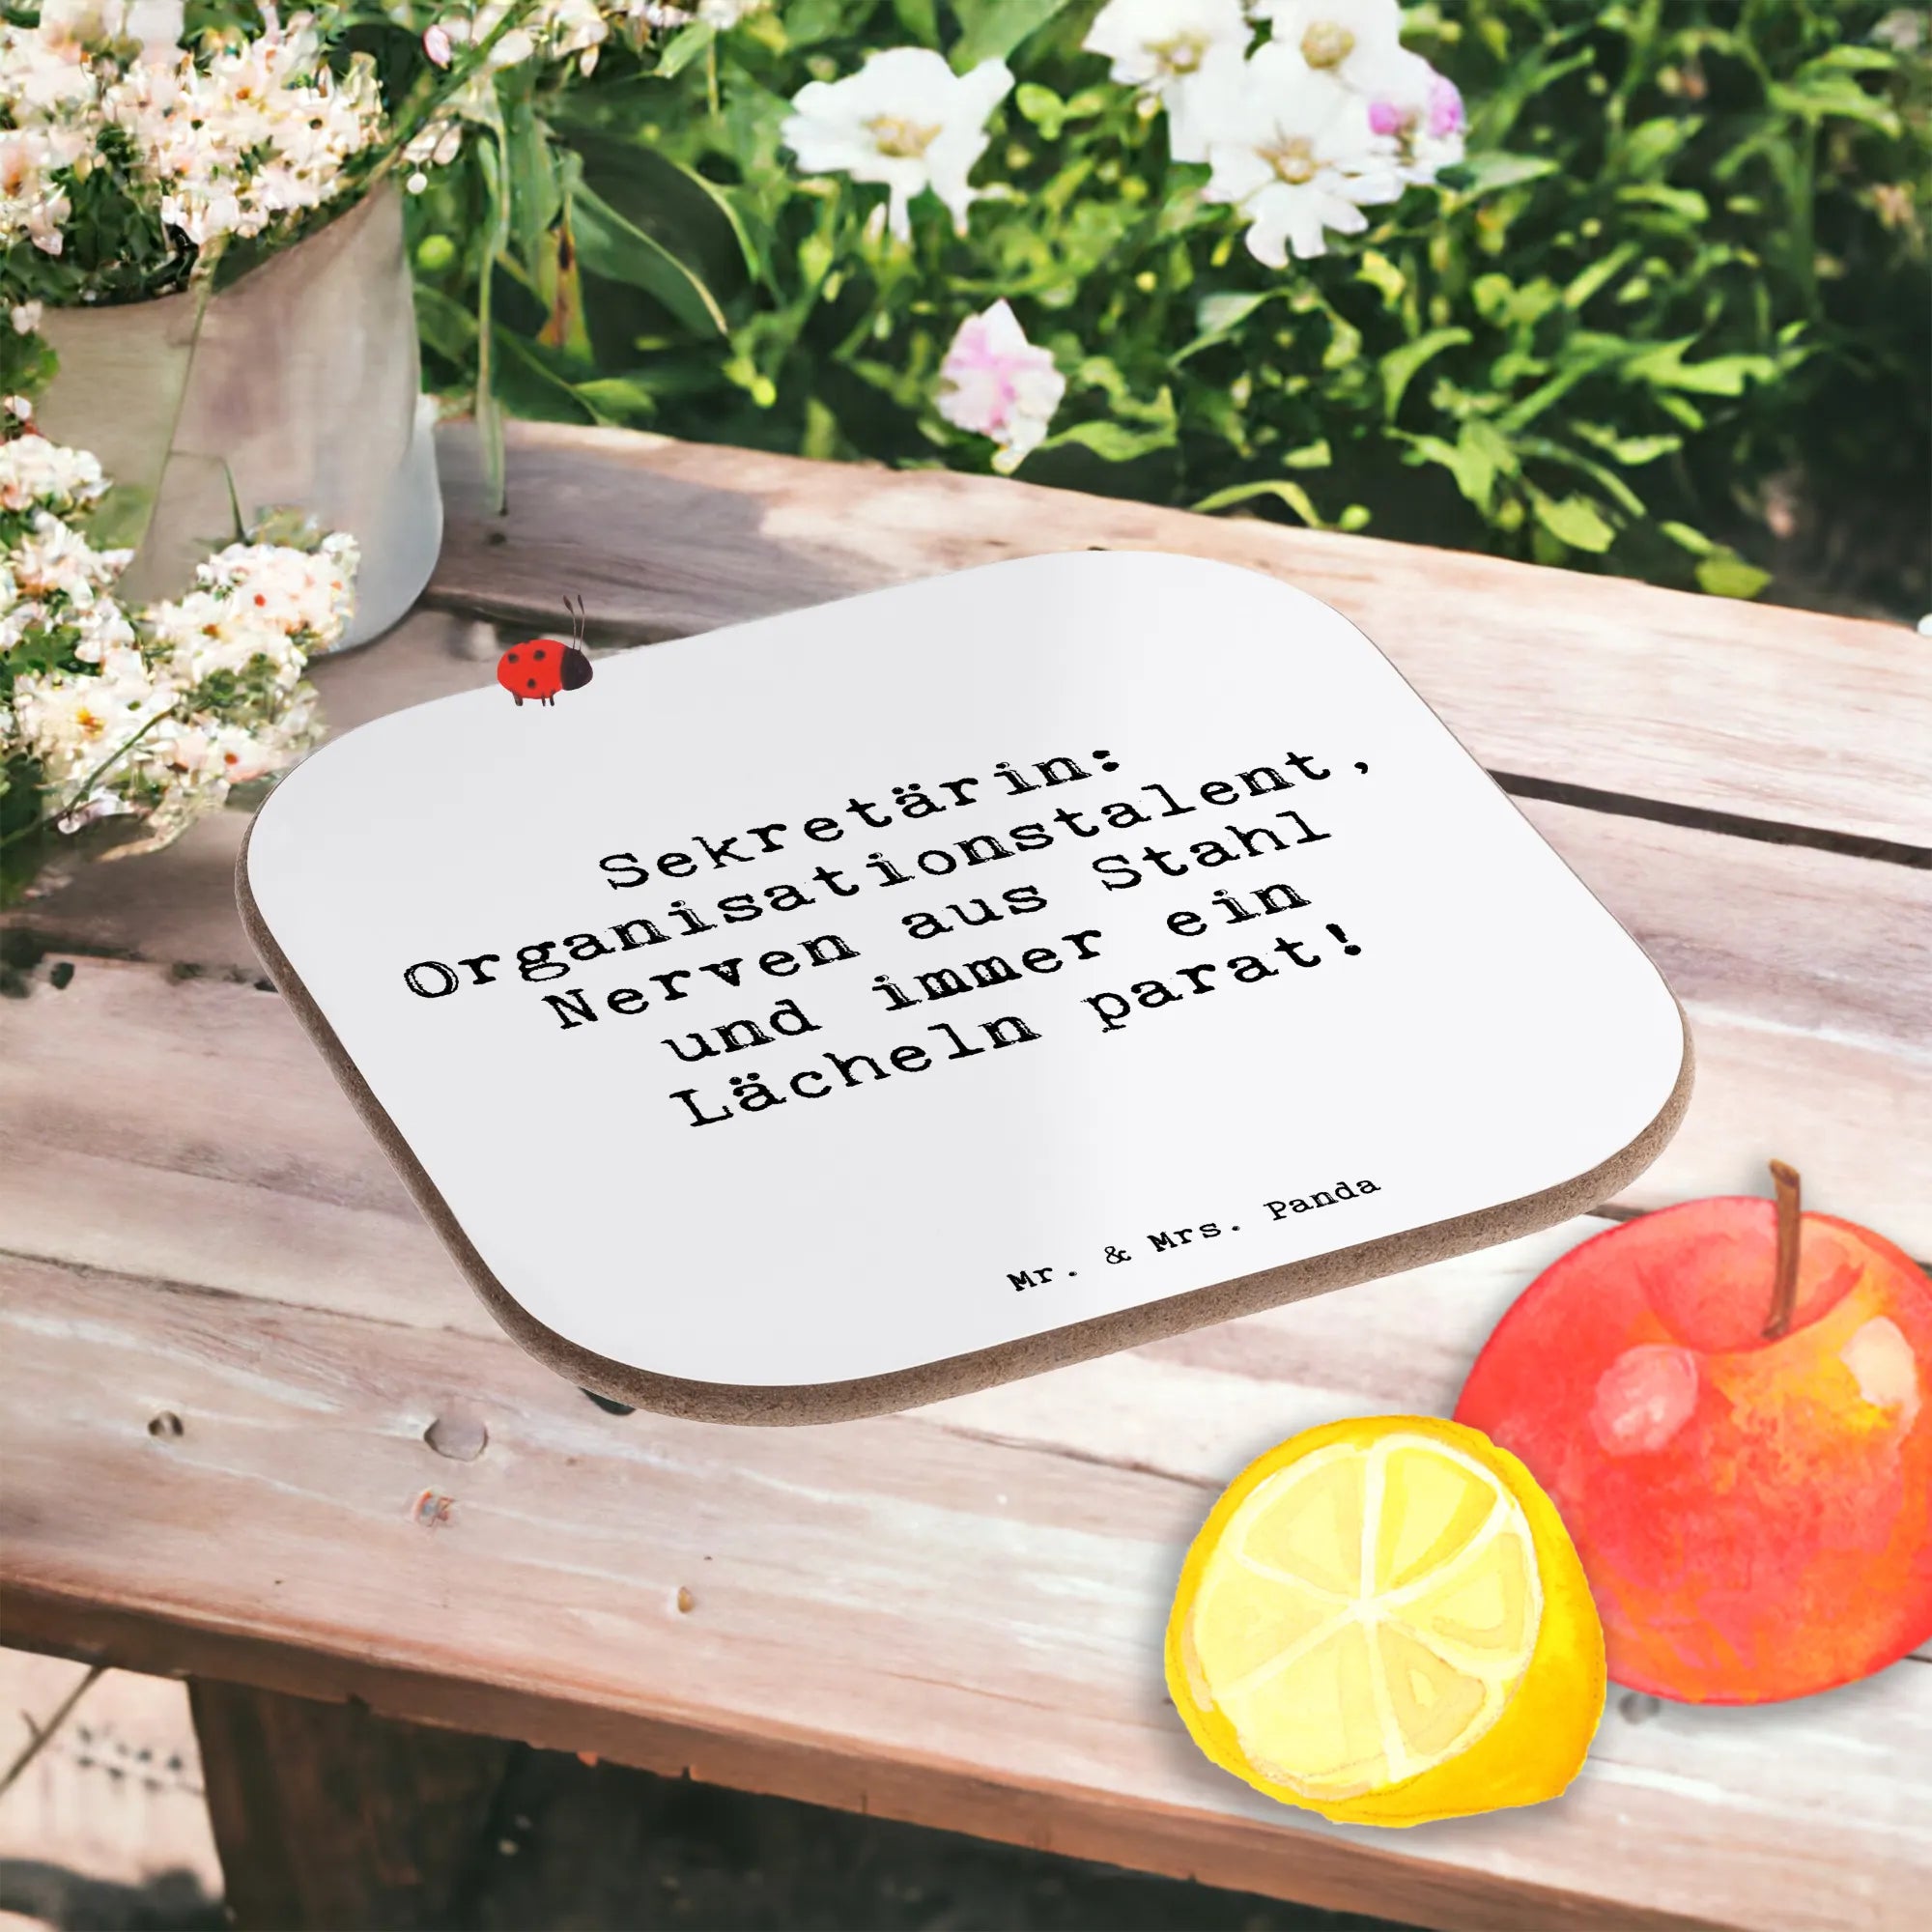 Sekretärin:
Organisationstalent,
Nerven aus Stahl
und immer ein
Lächeln parat!
Mr. & Mrs. Panda